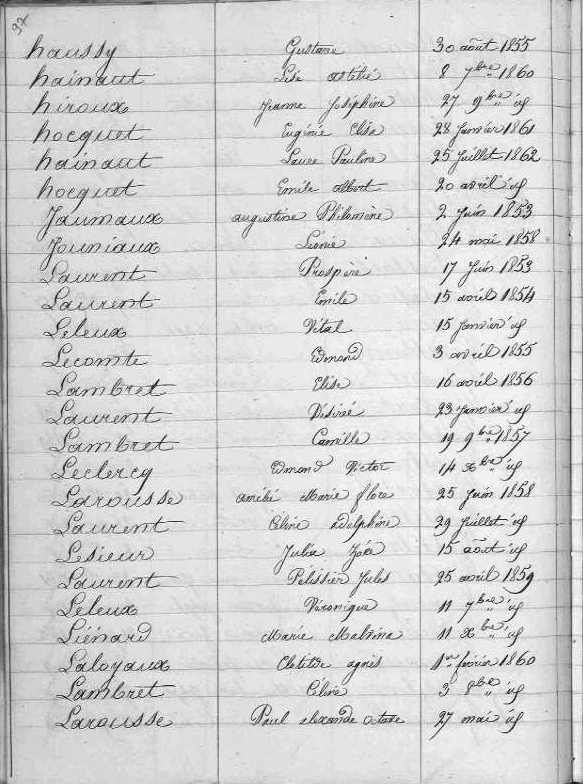 37
haussy Gustave 30 août 1855
hainaut Lise 8 7bre 1860
hiroux Jeanne Joséphine 27 9bre id
hocquet Eugénie Elisa 28 Janvier 1861
hainaut Laure Pauline 25 Juillet 1862
hocquet Emile albert 20 avril id
Jaumaux augustine Philomène 2 Juin 1853
Jouniaux Léonie 24 mai 1858
Laurent Prospère 17 Juin 1853
Laurent Emile 15 avril 1854
Leleux Vital 15 Janvier id
Lecomte Edmond 3 avril 1855
Lambret Elise 16 avril 1856
Laurent Désirée 23 Janvier id
Lambret Camille 19 9bre 1857
Leclercq Edmond Victor 14 Xbre id
Larousse Marie flore 25 Juin 1858
Laurent Céline adelphine 29 Juillet id
Lesieur Julia Zoée 15 août id
Laurent Pelissier Jules 25 avril 1859
Leleux Véronique 11 7bre id
Liénard Marie Malvina 11 Xbre id
Laloyaux Clotilde agnès 1er février 1860
Lambret Céline 3 8bre id
Larousse Paul alexandre octave 27 mai id